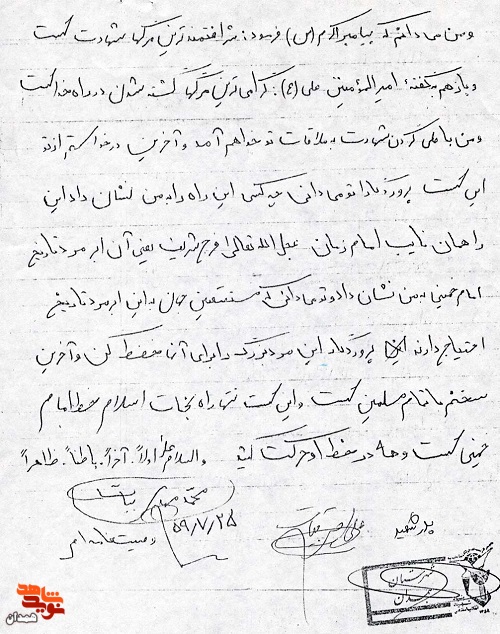 ومن می دانم که پیامبر اکرم (ص) فرمود: شرافتمندترین مرگها شهادت است
و بازهم بگفتهٔ امیرالمؤمنین علی (ع): گرامی ترین مرگها کشته شدن در راه خداست
ومن با طی کردن شهادت به ملاقات تو خواهم آمد و آخرین درخواستم از تو
این است پروردگارا تو می دانی چه کسی این راه را به من نشان داد این
راهمان نایب امام زمان عجل الله تعالی فرج شریف یعنی آن ابرمرد تاریخ
امام خمینی به من نشان داد و تو می دانی که مستضعفین جهان به این ابرمرد تاریخ
احتیاج دارند پروردگارا این مرد بزرگ را برای آنها حفظ کن و آخرین
سخنم با تمام مسلمین است و این است تنها راه نجات اسلام خط امام
خمینی است و همه در خط او حرکت کنید والسلام علی اولاً. آخراً. باطناً. ظاهراً
محمد
۵۹/۷/۲۵
وصیت نامه ام
پدر شهید
شهرستان
همدان
نوید شاهد
همدان